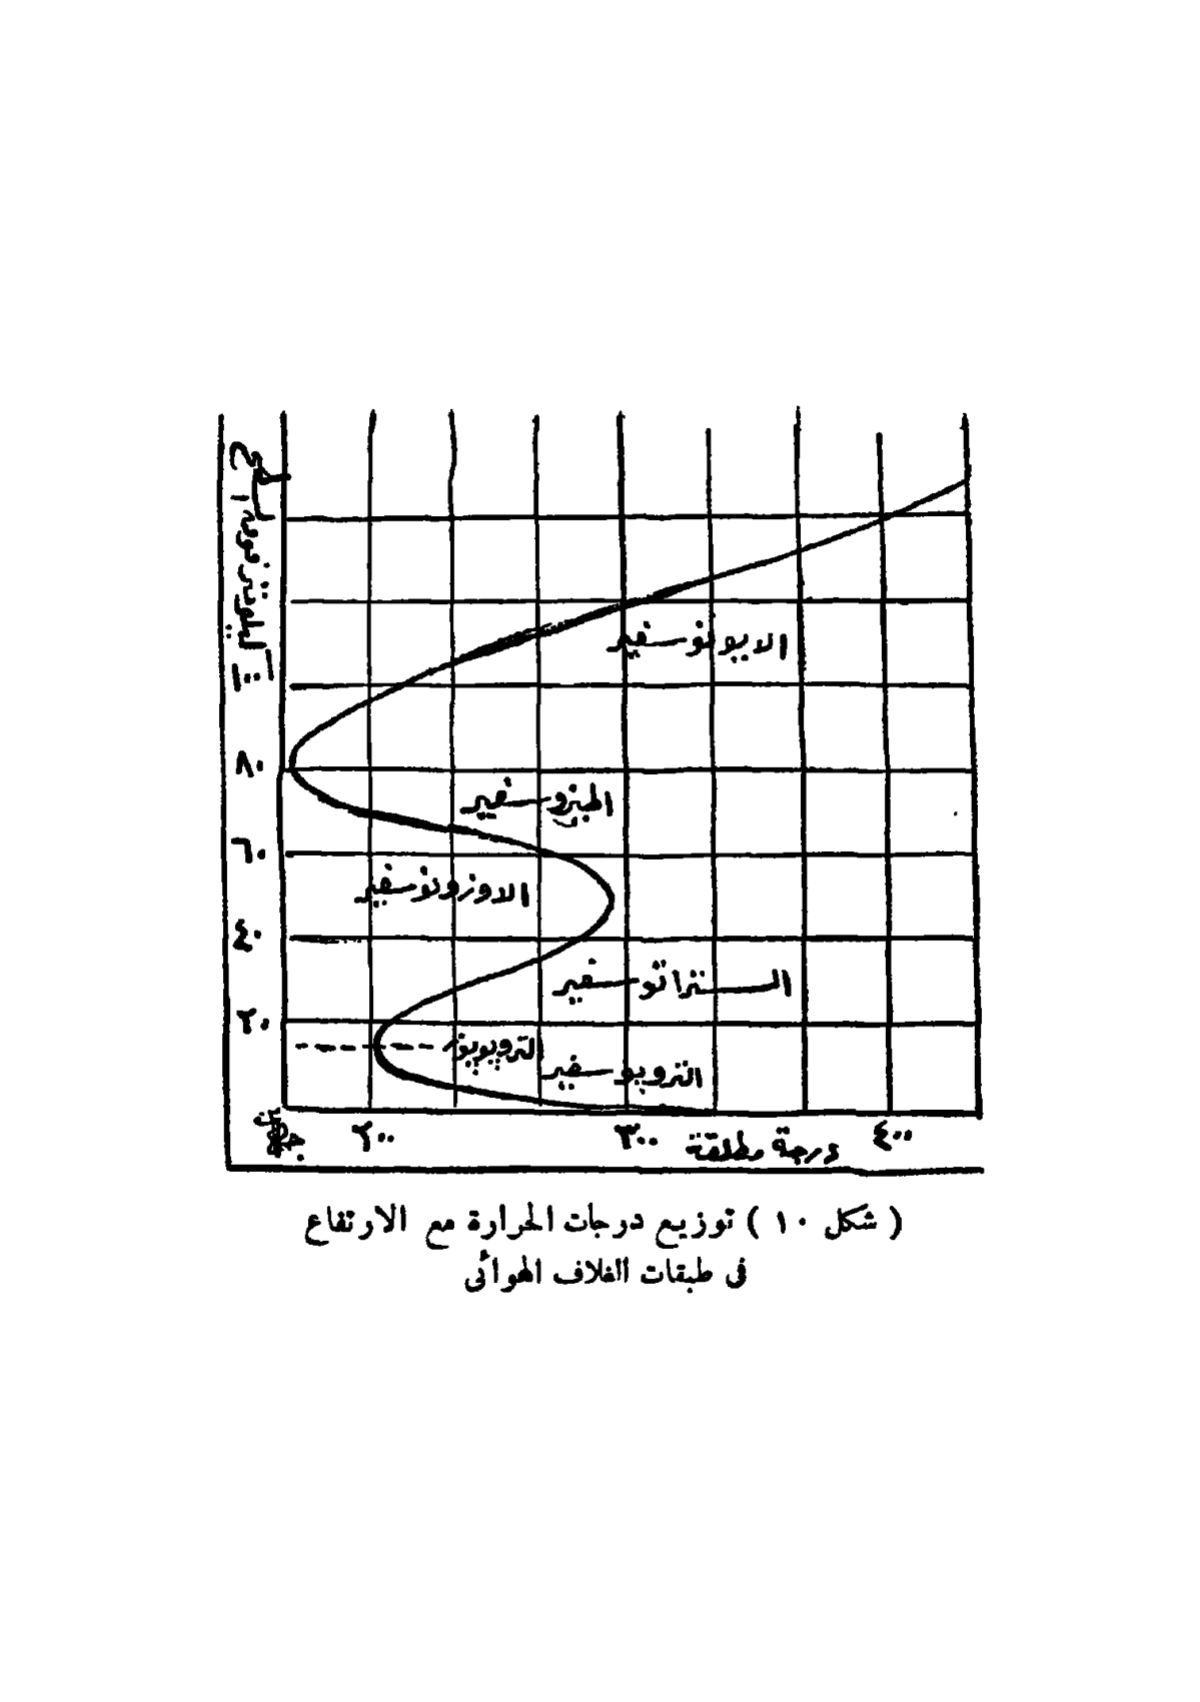 الايونوسفير
٨٠
الميزوسفير
٦٠
الاوزونوسفير
٤٠
الستراتوسفير
٢٠
التروبوبوز
التروبوسفير
٢٠٠
٣٠٠
درجة مطلقة
٤٠٠
( شكل ١٠ ) توزيع درجات الحرارة مع الارتفاع
فى طبقات الغلاف الهوائى